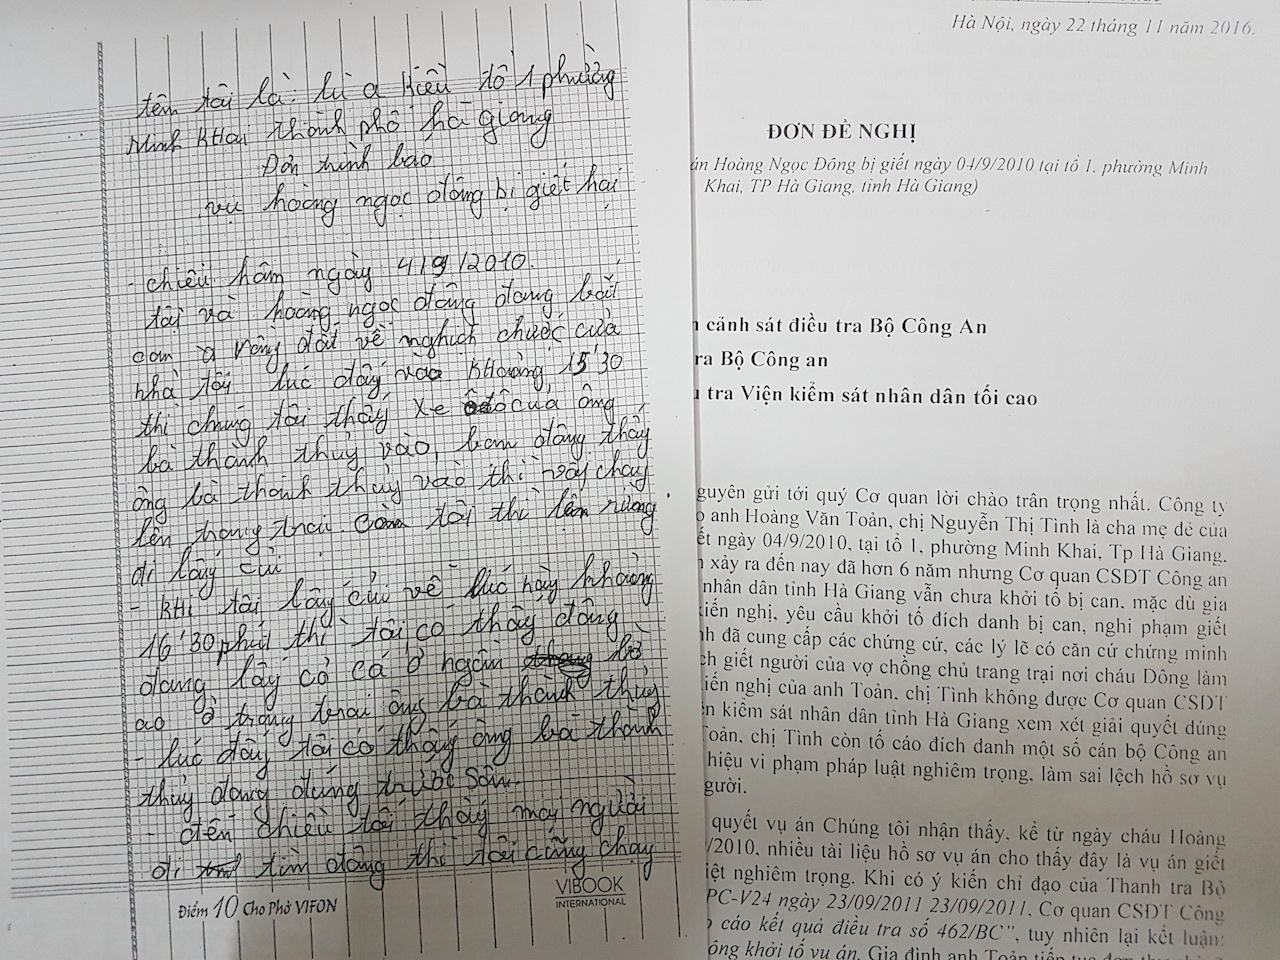 tên tôi là: lù a Kiều tổ 1 phường
Minh Khai thành phố hà giang
Đơn trình báo
vụ hoàng ngọc đông bị giết hại
- chiều hôm ngày 4/9/2010.
tôi và hoàng ngọc đông đang bắt
con ở vòng đất về nghịch chước cửa
nhà tôi lúc đấy vào khoảng 15'30
thì chúng tôi thấy xe ôtô của ông
bà thành thuỷ vào, ban đông thấy
ông bà thành thủy vào thì vội chạy
lên trang trai. còn tôi thì lên rừng
đi lấy củi
- khi tôi lấy củi về lúc này khoảng
16'30 phút thì tôi có thấy đông
đang lấy cỏ cá ở ngần bờ
ao ở trong trai ông bà thành thủy
- lúc đấy tôi có thấy ông bà thành
thủy đang đứng trước sân.
- đến chiều tôi thấy mọi người
đi tìm đông thì tôi cũng chạy
Điểm 10 Cho Phở VIFON
VIBOOK
INTERNATIONAL
Hà Nội, ngày 22 tháng 11 năm 2016.
ĐƠN ĐỀ NGHỊ
án Hoàng Ngọc Đông bị giết ngày 04/9/2010 tại tổ 1, phường Minh
Khai, TP Hà Giang, tỉnh Hà Giang)
cảnh sát điều tra Bộ Công An
ra Bộ Công an
tra Viện kiểm sát nhân dân tối cao
guyên gửi tới quý Cơ quan lời chào trân trọng nhất. Công ty
anh Hoàng Văn Toản, chị Nguyễn Thị Tình là cha mẹ đẻ của
ết ngày 04/9/2010, tại tổ 1, phường Minh Khai, Tp Hà Giang.
xảy ra đến nay đã hơn 6 năm nhưng Cơ quan CSĐT Công an
nhân dân tỉnh Hà Giang vẫn chưa khởi tố bị can, mặc dù gia
kiến nghị, yêu cầu khởi tố đích danh bị can, nghi phạm giết
nh đã cung cấp các chứng cứ, các lý lẽ có căn cứ chứng minh
ch giết người của vợ chồng chủ trang trại nơi cháu Đông làm
iến nghị của anh Toản, chị Tình không được Cơ quan CSĐT
n kiểm sát nhân dân tỉnh Hà Giang xem xét giải quyết đúng
oản, chị Tình còn tố cáo đích danh một số cán bộ Công an
hiệu vi phạm pháp luật nghiêm trọng, làm sai lệch hồ sơ vụ
gười.
quyết vụ án Chúng tôi nhận thấy, kể từ ngày cháu Hoàng
/2010, nhiều tài liệu hồ sơ vụ án cho thấy đây là vụ án giết
iệt nghiêm trọng. Khi có ý kiến chỉ đạo của Thanh tra Bộ
PC-V24 ngày 23/09/2011 23/09/2011, Cơ quan CSĐT Công
cáo kết quả điều tra số 462/BC", tuy nhiên lại kết luận:
ông khởi tố vụ án. Gia đình anh Toản tiếp tục